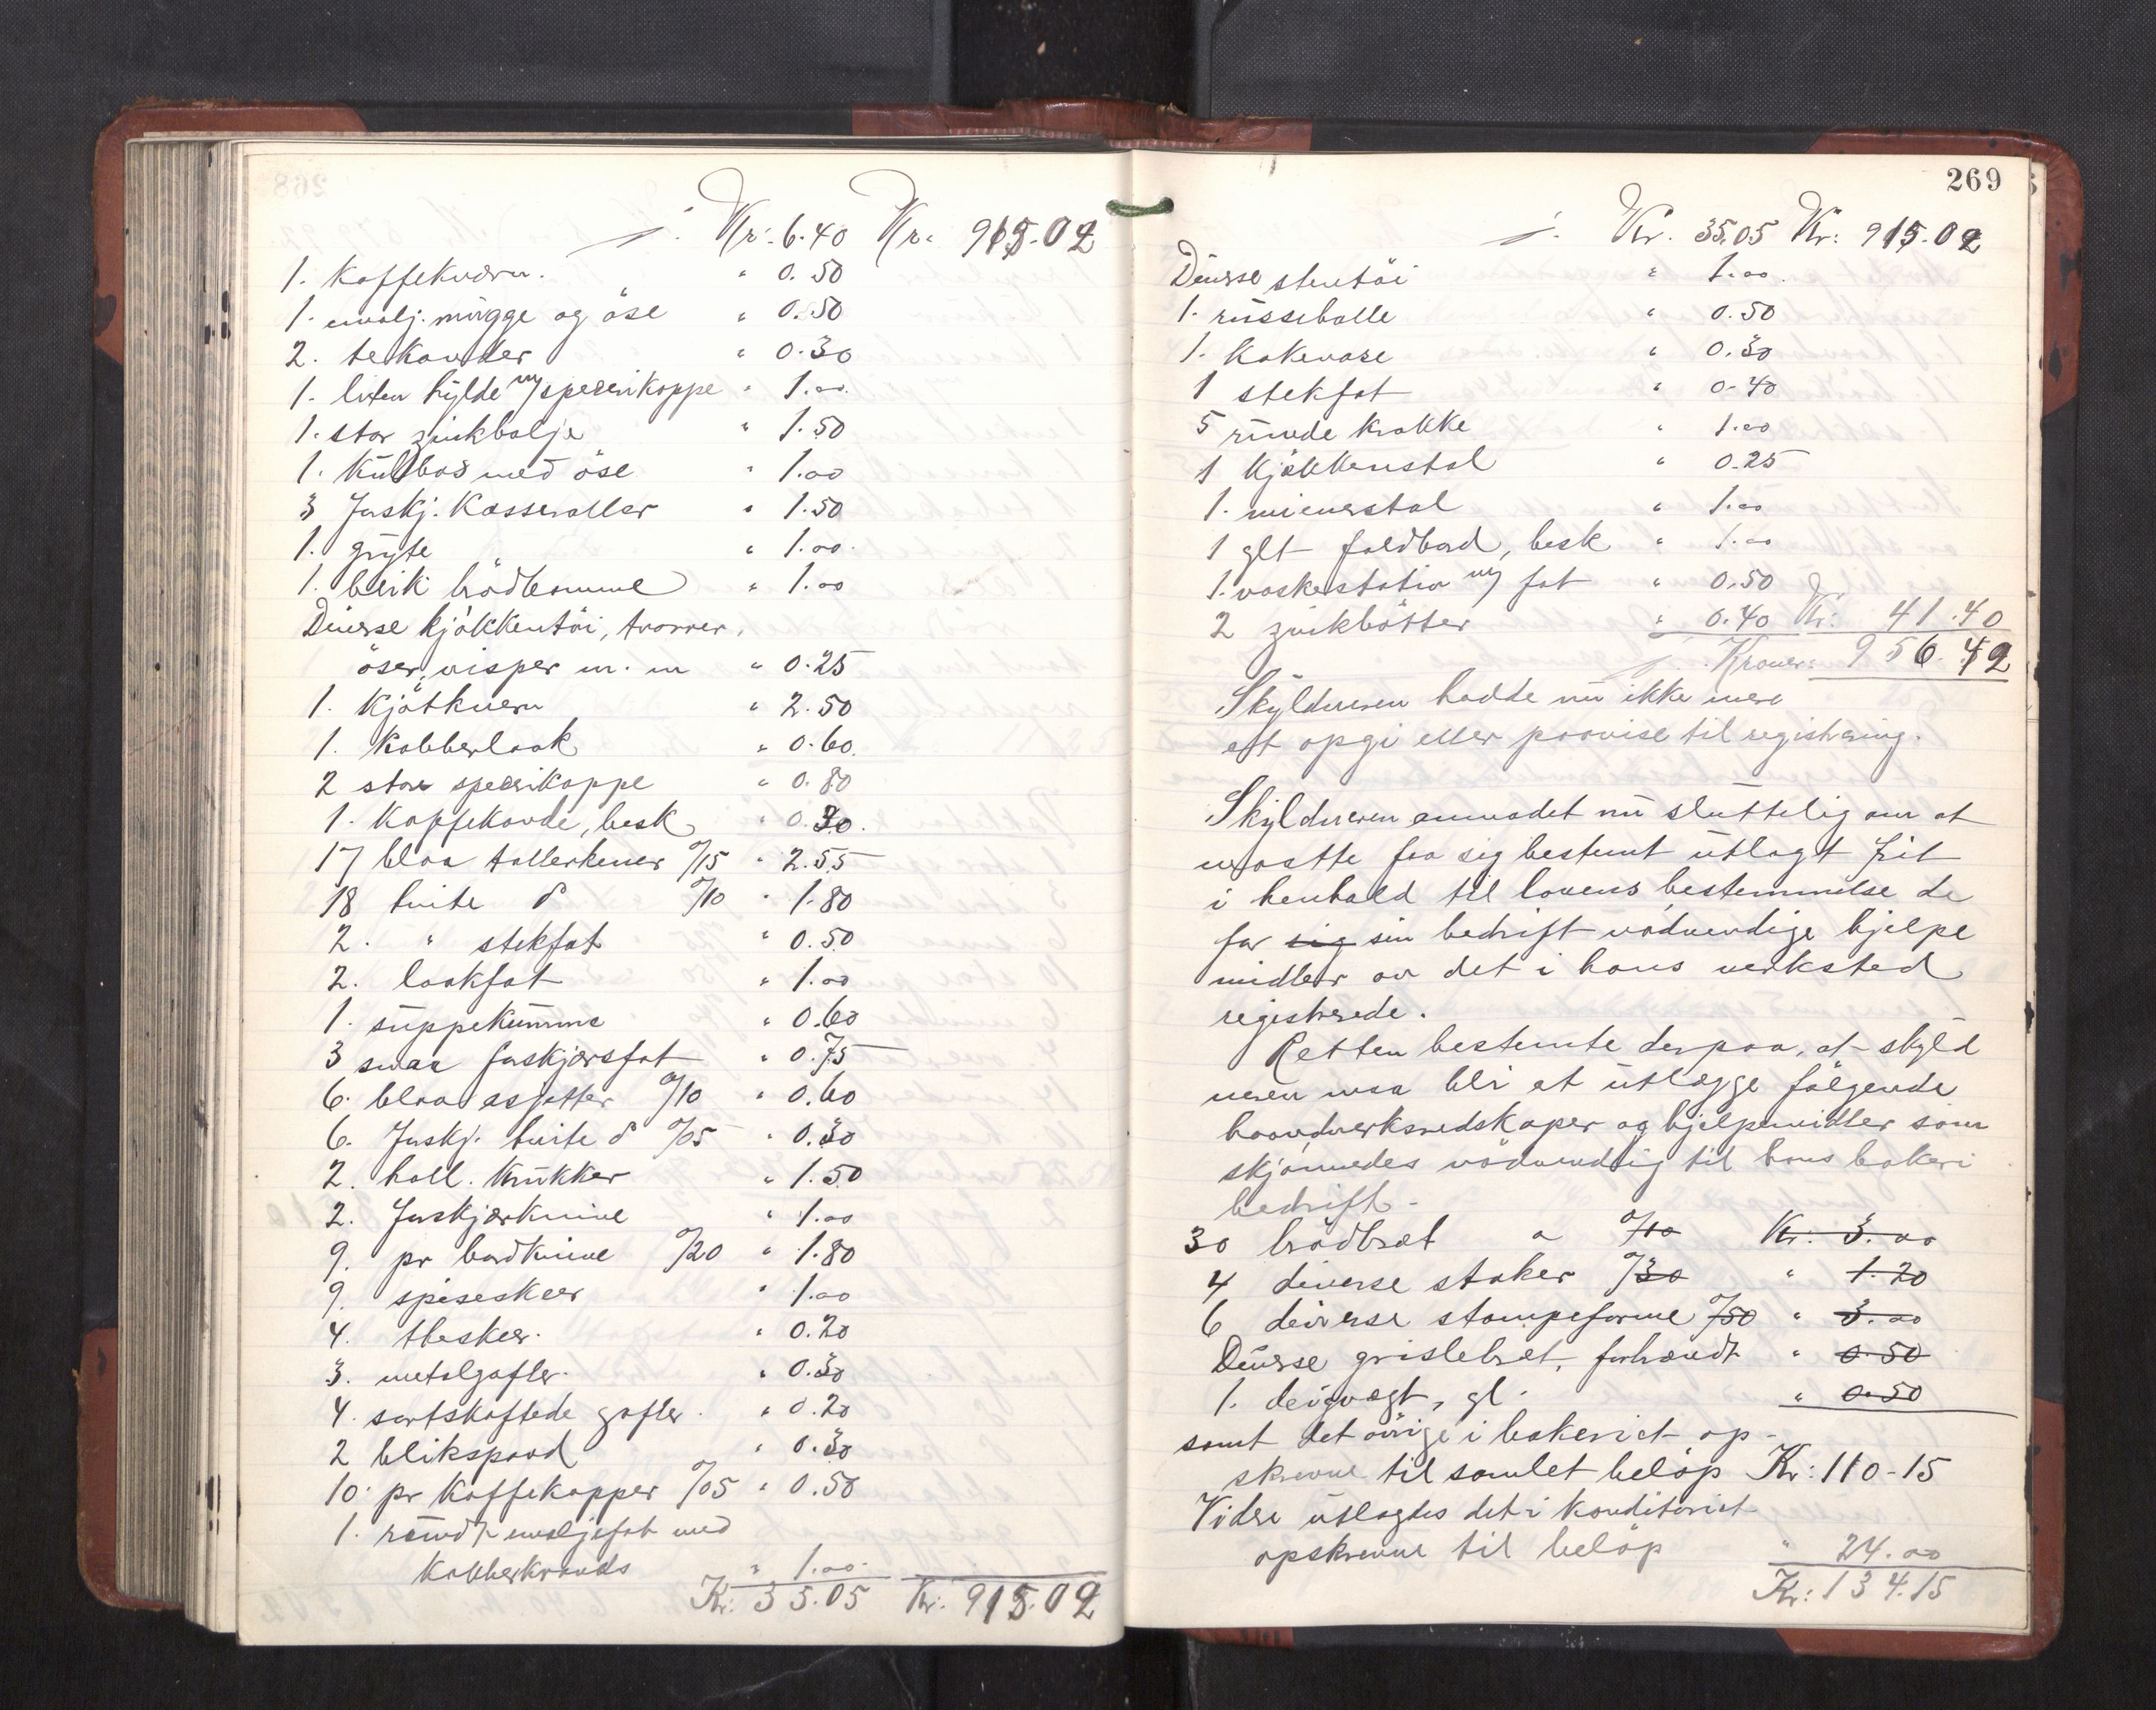 Kr: 6.40 Kr: 915.02
1. Kaffekværn. " 0.50
1. emalj. mugge og öse " 0.50
2. tekander " 0.30
1. liten hylde m/ speserikoppe " 1.00
1. stor zinkbalje " 1.50
1. Kulboks med öse " 1.00
3 Juskj. Kasseroller " 1.50
1. gryte " 1.00
1. blik brödtromme " 1.00
Diverse kjökkentöi, traver,
öser, visper m. m " 0.25
1. Kjötkvern " 2.50
1. Kobberlaak " 0.60
2 store speserikoppe " 0.80
1. Kaffekande, besk. " 0.30
17 blaa tallerkener a/15 " 2.55
18 hvite d a/10 " 1.80
2. " stekfat " 0.50
2. laakfat " 1.00
1. suppekumme " 0.60
3 smaa fuskjærsfat " 0.75
6. blaa asjetter a/10 " 0.60
6. Juskj. hvite d a/05 " 0.30
2. holl. Krukker " 1.50
2. Juskjærknive " 1.00
9. pr bordknive a/20 " 1.80
9. spiseskeer " 1.00
4. theskeer. " 0.20
3. metalgafler. " 0.30
4. sortskaftede gafler. " 0.20
2 blikspand " 0.30
10. pr Kaffekopper a/05 " 0.50
1. rundt emaljefat med
Kobberkrands " 1.00
Kr: 35.05 Kr: 915.02
269
Kr. 35.05 Kr: 915.02
Diverse stentöi " 1.00
1. russebolle " 0.50
1. Kakevase " 0.30
1 stekfat " 0.40
5 runde krakke " 1.00
1 Kjökkenstol " 0.25
1. wienerstol " 1.00
1 glt foldbord, besk " 1.00
1. vaskestativ m/ fat " 0.50
2 zinkbötter " 0.40 Kr: 41.40
Kroner: 956.42
Skyldneren hadde nu ikke mere
at opgi eller paavise til registrering.
Skyldneren anmodet nu sluttelig om at
maatte faa sig bestemt utlagt frit
i henhold til lovens bestemmelse de
for sig sin bedrift nödvendige hjelpe
midler av det i hans verksted
registrerede.
Retten bestemte derpaa, at skyld
neren maa bli at utlægge fölgende
haandverksredskaper og hjelpemidler som
skjönnedes nödvendig til hans bakeri
bedrift.
30 brödbræt a a/10 Kr: 3.00
4 diverse staker a/30 " 1.20
6 diverse stampeforme a/50 " 3.00
Diverse grislebræt, forhændt " 0.50
1. deigvægt, gl. " 0.50
samt det övrige i bakeriet op-
skrevne til samlet belöp Kr: 110.15
Videre utlagdes det i konditoriet
opskrevne til belöp " 24.00
Kr: 134.15